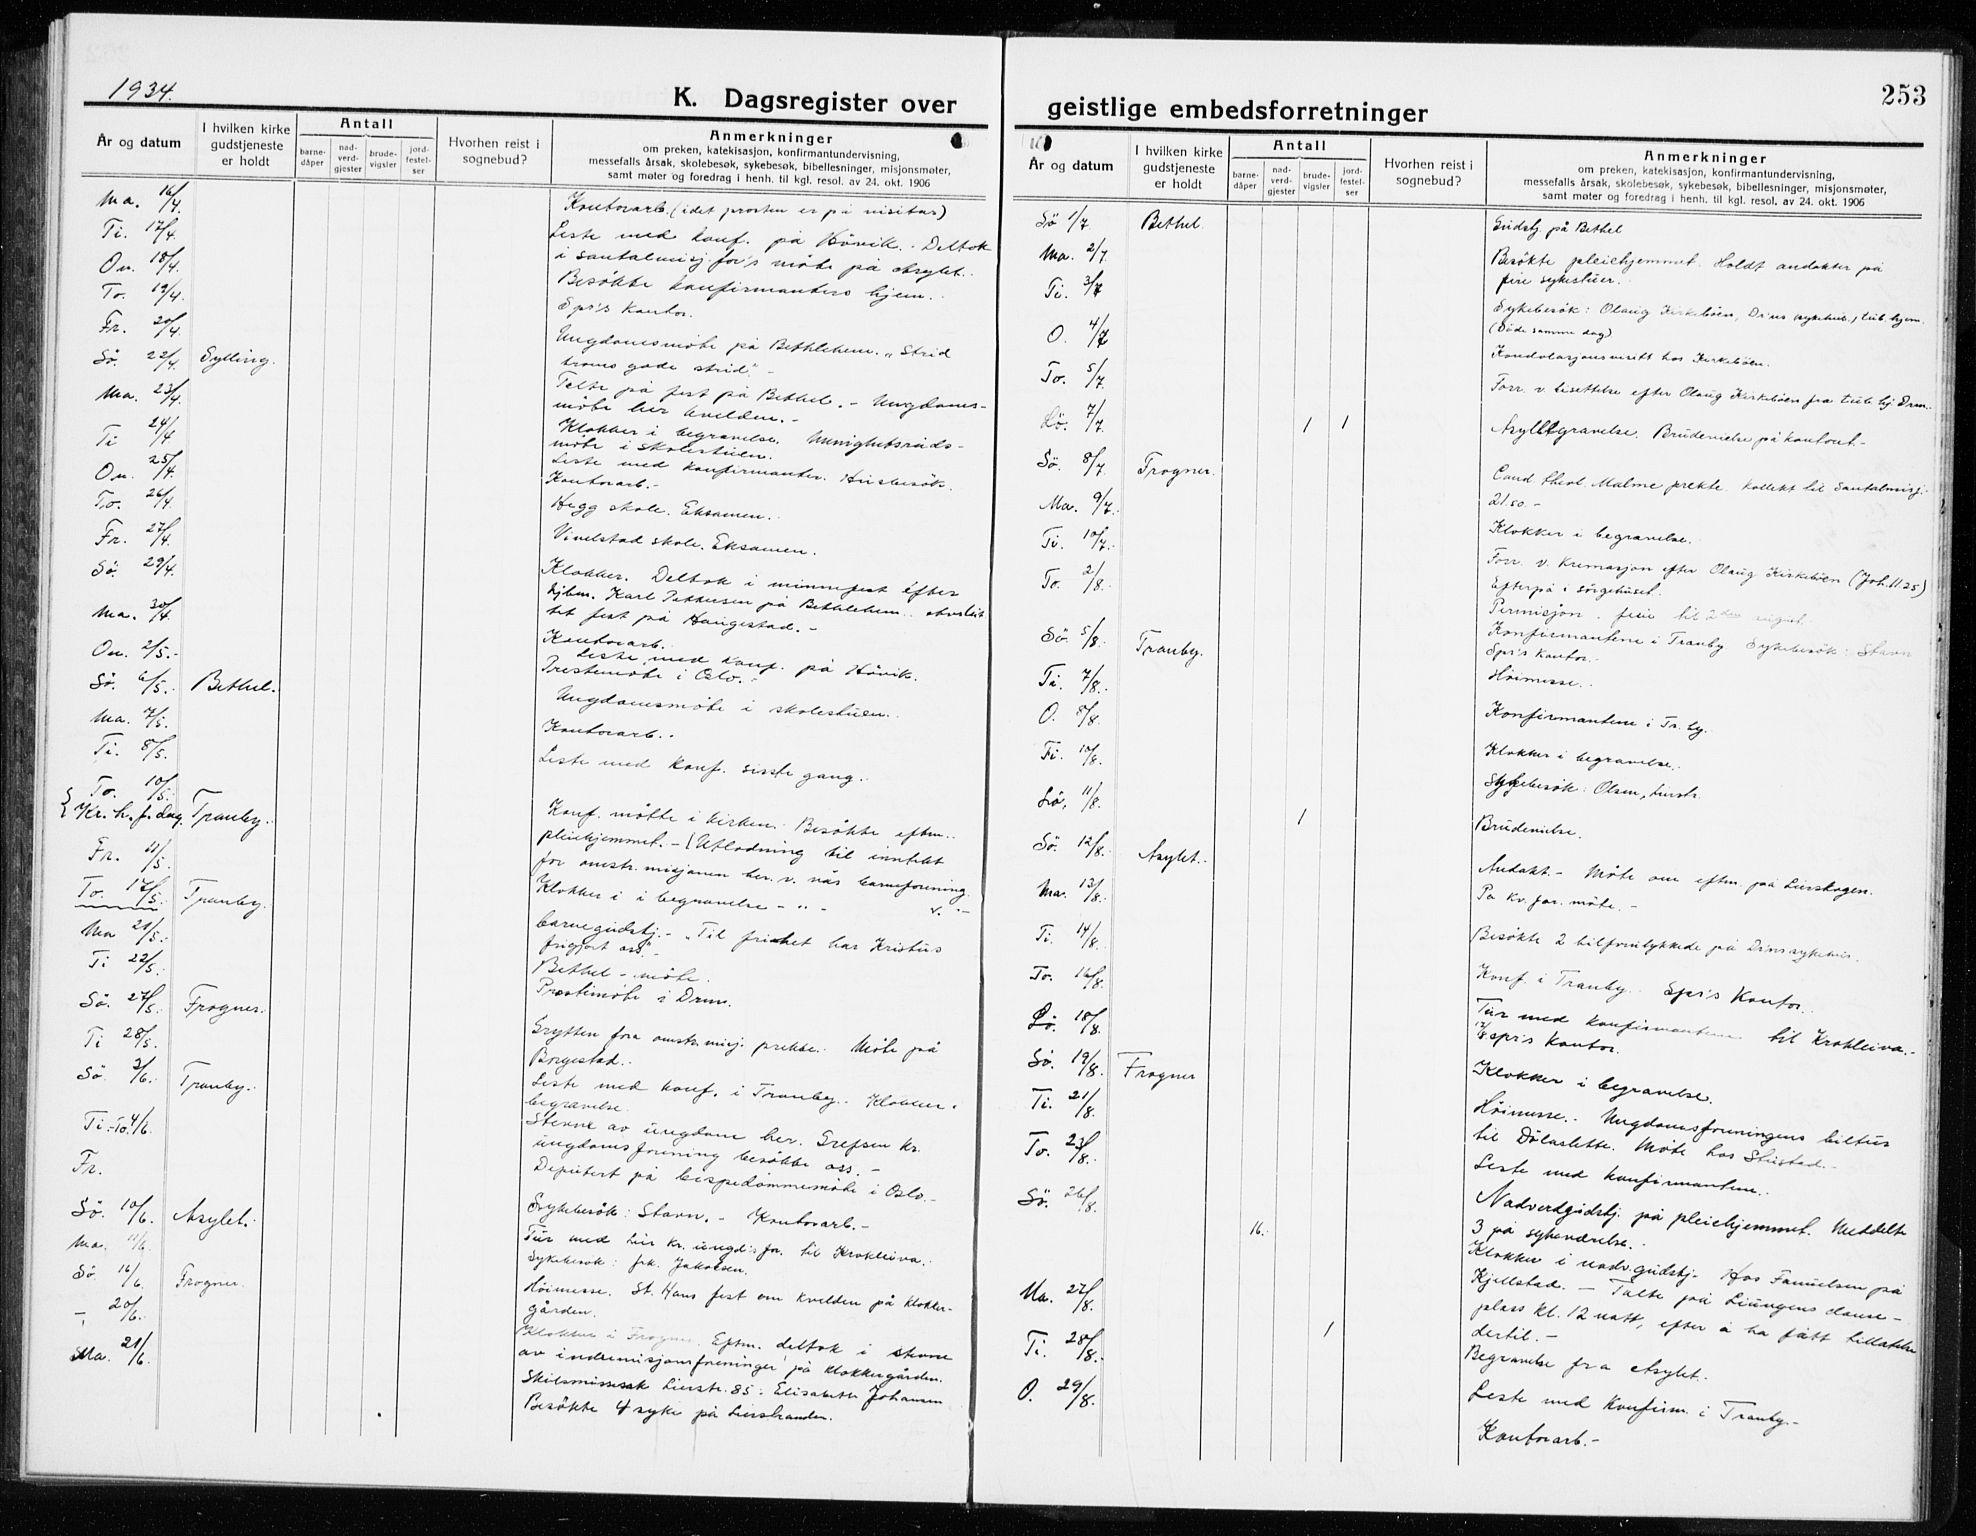 1934.
K. Dagsregister over
År og datum
I hvilken kirke
gudstjeneste
er holdt
Antall
barne-
dåper
nad-
verd-
gjester
brude-
vigsler
jord-
festel-
ser
Hvorhen reist i
sognebud?
Anmerkninger
om preken, katekisasjon, konfirmantundervisning,
messefalls årsak, skolebesøk, sykebesøk, bibellesninger, misjonsmøter,
samt møter og foredrag i henh. til kgl. resol. av 24. okt. 1906
Ma. 16/4.
Ti. 17/4.
On. 18/4.
To. 19/4.
Fr. 20/4.
Sö. 22/4. Sylling.
Ma. 23/4.
Ti 24/4
On. 25/4.
To. 26/4.
Fr. 27/4.
Sö. 29/4.
Ma. 30/4.
On. 2/5.-
Sö. 6/5. Bethel.
Ma. 7/5.
Ti. 8/5.
To. 10/5.
Kr. h. f. dag. Tranby.
Fr. 11/5.
To. 17/5. Tranby.
Ma 21/5.
Ti 22/5.
Sö. 27/5. Frogner.
Ti 28/5.
Sö 3/6. Tranby.
Ti.-To. 4/6.
Fr.
Sö. 10/6. Asylet.
Ma. 11/6.
Sö. 16/6. Frogner.
- 20/6.
Ma. 21/6.
Kontorarb. (idet prosten er på visitas)
Leste med konf. på Hövik. Deltok
i santalmisj.for's möte på Asylet.
Besökte konfirmanters hjem.
Spr's kontor.
Ungdomsmöte på Bethlehem. "Strid
troens gode strid". -
Talte på fest på Bethel. - Ungdoms-
möte her kvelden. -
Klokker i begravelse. Menighetsråds-
möte i skolestuen.
Leste med konfirmanter. Husbesök.
Kontorarb. -
Hegg skole. Eksamen.
Vivelstad skole. Eksamen.
Klokker. Deltok i minnefest efter
Karl Pettersen på Bethlehem.
tet fest på Haugestad. -
Kontorarb.
Leste med konf. på Hövik.
Prestemöte i Oslo. -
Ungdomsmöte i skolestuen.
Kontorarb.
Leste med konf. siste gang.
Konf. mötte i kirken. Besökte eftm.
pleiehjemmet. - (Utlodning til inntekt
for omstr.misjonen her. v. vår barneforening.
Klokker i begravelse - " -
barnegudstj. - "Til frihet har Kristus
frigjort oss". -
Bethel - möte.
Prestemöte i Drm.
Grytten fra omstr.misj. prekte. Möte på
Borgestad.
Leste med konf. i Tranby. Klokker.
begravelse.
Stevne av ungdom her. Grefsen kr.
ungdomsforening besökte oss. -
Deputert på bispedömmemöte i Oslo. -
Sykebesök: Stavn. - Kontorarb. -
Tur med Lier kr. ungd.for. til Krokleiva.
Sykebesök: frk. Jakobsen.
Höimesse. St. Hans fest om kvelden på klokker-
gården.
Klokker i Frogner. Eftm. deltok i stevne
av indremisjonsforeninger på klokkergården.
Skilsmissesak Lierstr. 85: Elisabeth Johansen
Besökte 4 syke på Lierstranden.
geistlige embedsforretninger
253
År og datum
I hvilken kirke
gudstjeneste
er holdt
Antall
barne-
dåper
nad-
verd-
gjester
brude-
vigsler
jord-
festel-
ser
Hvorhen reist i
sognebud?
Anmerkninger
om preken, katekisasjon, konfirmantundervisning,
messefalls årsak, skolebesøk, sykebesøk, bibellesninger, misjonsmøter,
samt møter og foredrag i henh. til kgl. resol. av 24. okt. 1906
Sö 1/7. Bethel.
Ma. 2/7.
Ti. 3/7
O. 4/7
To. 5/7.
Lö. 7/7. 1 1
Sö. 8/7. Frogner.
Ma. 9/7.
Ti. 10/7.
To. 2/8.
Sö. 5/8. Tranby.
Ti. 7/8.
O. 8/8.
Fr. 10/8.
Lö. 11/8. 1
Sö. 12/8. Asylet.
Ma. 13/8.
Ti. 14/8.
To. 16/8.
Lö. 18/8.
Sö. 19/8. Frogner
Ti. 21/8.
To. 23/8.
Sö. 26/8.
16.
Ma. 27/8.
Ti. 28/8. 1
O. 29/8.
Gudstj. på Bethel
Besökte pleiehjemmet. Holdt andakter på
fire sykestuer.
Sykebesök: Olaug Kirkeböen, Drms sykehus, tub. hjem.
(Döde samme dag)
Kondolasjonsvisitt hos Kirkeböen.
Forr. v. bisettelse efter Olaug Kirkeböen fra tub. hj. Drm.
Asylbegravelse. Brudevielse på kontoret. -
Cand. theol. Malme prekte. Kollekt til Santalmisj.
21.50. -
Klokker i begravelse.
Forr. v. kremasjon efter Olaug Kirkeböen (Joh. 11.25)
Efterpå i sörgehuset.
Permisjon. ferie til 2den august.
Konfirmantene i Tranby Sykebesök: Stavn
Spr's kontor. -
Höimesse.
Konfirmantene i Tr.by.
Klokker i begravelse.
Sykebesök: Olsen, Lierstr.
Brudevielse.
Andakt. - Möte om eftm. på Lierskogen.
På kv.for. möte. -
Besökte 2 bilforulykkede på Drms sykehus.
Konf. i Tranby. Spr's Kontor.
Tur med konfirmantene til Krokleiva. -
17/8 spr's kontor.
Klokker i begravelse.
Höimesse. Ungdomsforeningens biltur
til Möte hos Stustad. -
Leste med konfirmantene.
Nadverdgudstj. på pleiehjemmet. Meddelte
3 på sykeværelse.
Klokker i nadv.gudstj. Hos Samuelsen på
Kjellstad. - Talte på Liungens danse-
plass kl. 12 natt, efter å ha fått tillatelse
dertil. -
Begravelse fra Asylet.
Leste med Konfirm. i Tranby. -
Kontorarb. -